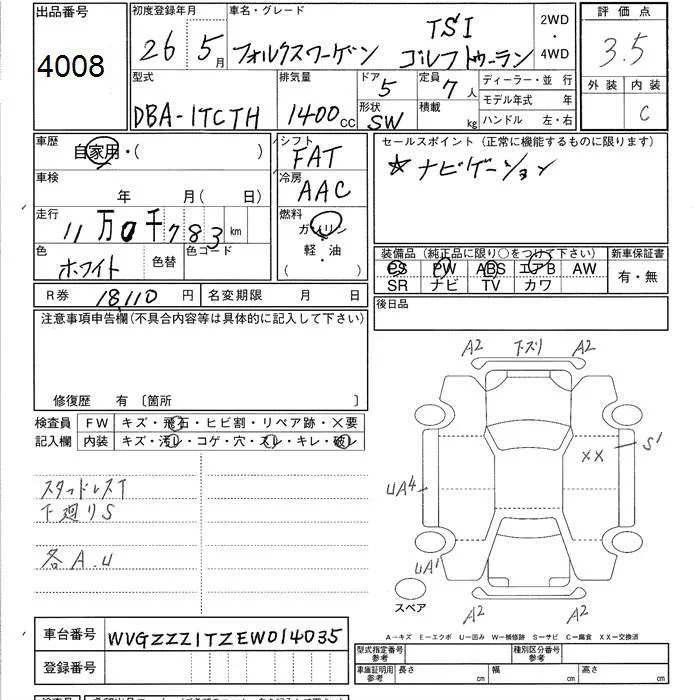 出品番号 初度登録年月 車名・グレード 2WD・4WD 評価点
4008 26 5月 フォルクスワーゲン TSI ゴルフトゥーラン 3.5
型式 排気量 ドア 5 定員 7人 ディーラー・並 行 外装 内装
DBA-1TCTH 1400cc 形状 SW 積載 kg モデル年式 年 C
ハンドル 左・右
車歴 自家用・( ) シフト FAT セールスポイント (正常に機能するものに限ります)
☆ナビゲーション
車検 年 月(日) 冷房 AAC
走行 11万0千783km 燃料 ガソリン 軽・油 ( ・ )
色 ホワイト 色替 色コード
装備品 (純正品に限り○をつけて下さい) 新車保証書
PS PW ABS エアB AW 有・無
SR ナビ TV カワ
R券 18,110円 名変期限 月 日 後日品
注意事項申告欄(不具合内容等は具体的に記入して下さい)
修復歴 有 〔箇所 〕
検査員 FW キズ・飛石・ヒビ割・リペア跡・×要
記入欄 内装 キズ・汚レ・コゲ・穴・スレ・キレ・破レ
スタッドレスT
下廻りS
各A.U
A2 下ズリ A2
UA4 XX S1
UA1
スペア A2 A2
A−キズ E−エクボ U−凹み W−補修跡 S−サビ C−腐食 XX−交換済
車台番号 WVGZZZ1TZEW014035
登録番号
型式指定番号 参考 種別区分番号 参考
車庫証明用 参考 長さ cm 幅 cm 高さ cm